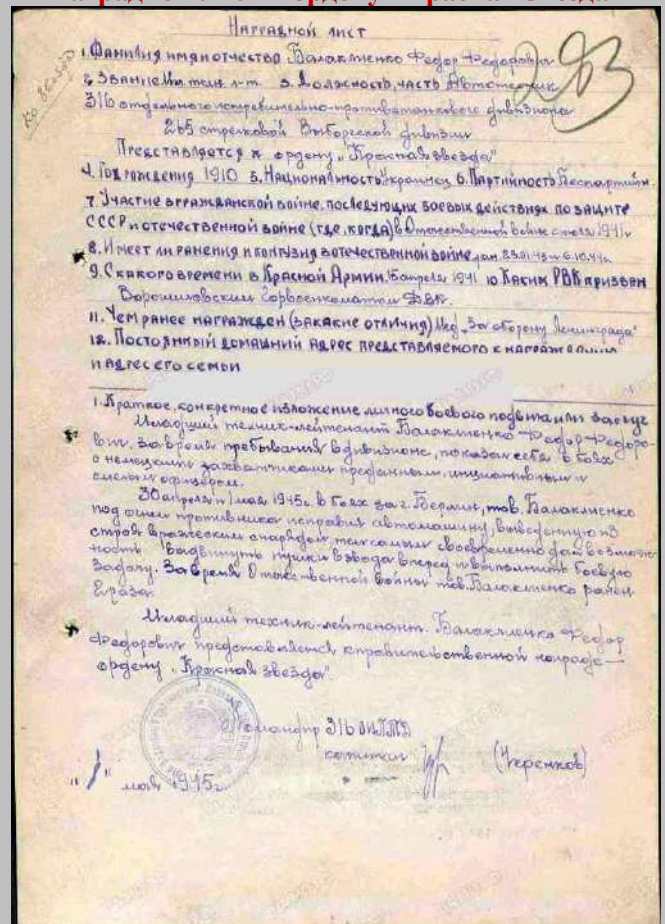 Наградной лист
1. Фамилия имя и отчество Балаклиенко Федор Федорович
2. Звание Мл. техн. л-т. 3. Должность, часть Автотехник
316 отдельного истребительно-противотанкового дивизиона
265 стрелковой Выборгской дивизии
Представляется к ордену "Красная звезда"
4. Год рождения 1910 5. Национальность Украинец 6. Партийность Беспартийн.
7. Участие в гражданской войне, последующих боевых действиях по защите
СССР и отечественной войне (где, когда) в Отечественной войне с июля 1941г
8. Имеет ли ранения и контузия в отечественной войне ран. 23.01.43 и 6.10.44г.
9. С какого времени в Красной Армии 15 апреля 1941 10. Каким РВК призван
Ворошиловским Горвоенкоматом ДВК.
11. Чем ранее награжден (за какие отличия) Мед. "За оборону Ленинграда"
12. Постоянный домашний адрес представляемого к награждению
и адрес его семьи
1. Краткое, конкретное изложение личного боевого подвига или заслуг
Младший техник-лейтенант Балаклиенко Федор Федоро-
вич. За время пребывания в дивизионе, показал себя в боях
с немецкими захватчиками преданным, инициативным и
смелым офицером.
30 апреля и 1 мая 1945г. в боях за г. Берлин, тов. Балаклиенко
под огнем противника исправил автомашину, выведенную из
строя вражеским снарядом, тем самым своевременно дал возмож-
ность выдвинуть пушки взвода вперед и выполнить боевую
задачу. За время Отечественной войны тов. Балаклиенко ранен
2 раза.
Младший техник-лейтенант. Балаклиенко Федор
Федорович представляется к правительственной награде —
ордену "Красная звезда"
Командир 316 ОИПТД
капитан (Черенков)
" 1 " мая 1945г